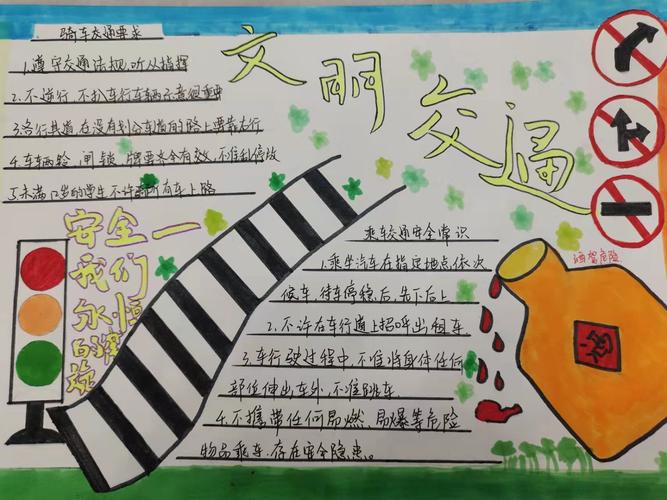 骑车交通要求
1.遵守交通法规,听从指挥
2.不逆行,不扒车行车辆
3.各行其道,在没有划分车道的路上要靠右行
4.车辆铃、闸、锁、牌要齐全有效,不准乱停放
5.未满12岁的学生不许骑自行车上路
文明交通
安全一
我们
永恒
的旋
乘车交通安全常识
1.乘坐汽车在指定地点,依次
候车,待车停稳后,先下后上
2.不许在车行道上招呼出租车
3.车行驶过程中,不准将身体任何
部位伸出车外,不准跳车.
4.不携带任何易燃、易爆等危险
物品乘车,存在安全隐患。
酒驾危险